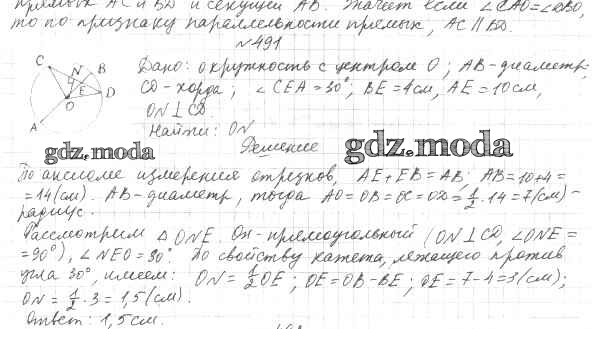 прямых AC и BD и секущей AB. Значит если ∠CAO=∠DBO,
то по признаку параллельности прямых, AC ∥ BD.
№491
C
N
B
E
D
O
A
Дано: окружность с центром O; AB-диаметр;
CD-хорда; ∠CEA=30°; BE=4см, AE=10см,
ON⊥CD.
Найти: ON
Решение
gdz.moda
gdz.moda
По аксиоме измерения отрезков, AE+EB=AB; AB=10+4=
=14(см). AB-диаметр, тогда AO=OB=OC=OD=1/2·14=7(см)-
радиус.
Рассмотрим △ONE. Он-прямоугольный (ON⊥CD, ∠ONE=
=90°), ∠NEO=30°. По свойству катета, лежащего против
угла 30°, имеем: ON=1/2OE; OE=OB-BE; OE=7-4=3(см);
ON=1/2·3=1,5(см).
Ответ: 1,5см.